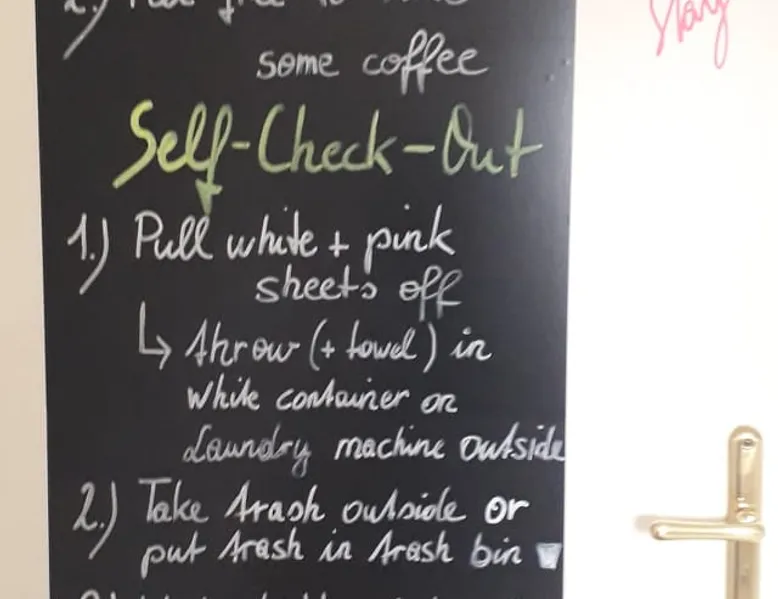 2.)
some coffee
Stay
Self-Check-Out
1.) Pull white + pink
sheets off
↳ throw (+ towel) in
white container on
Laundry machine outside
2.) Take trash outside or
put trash in trash bin